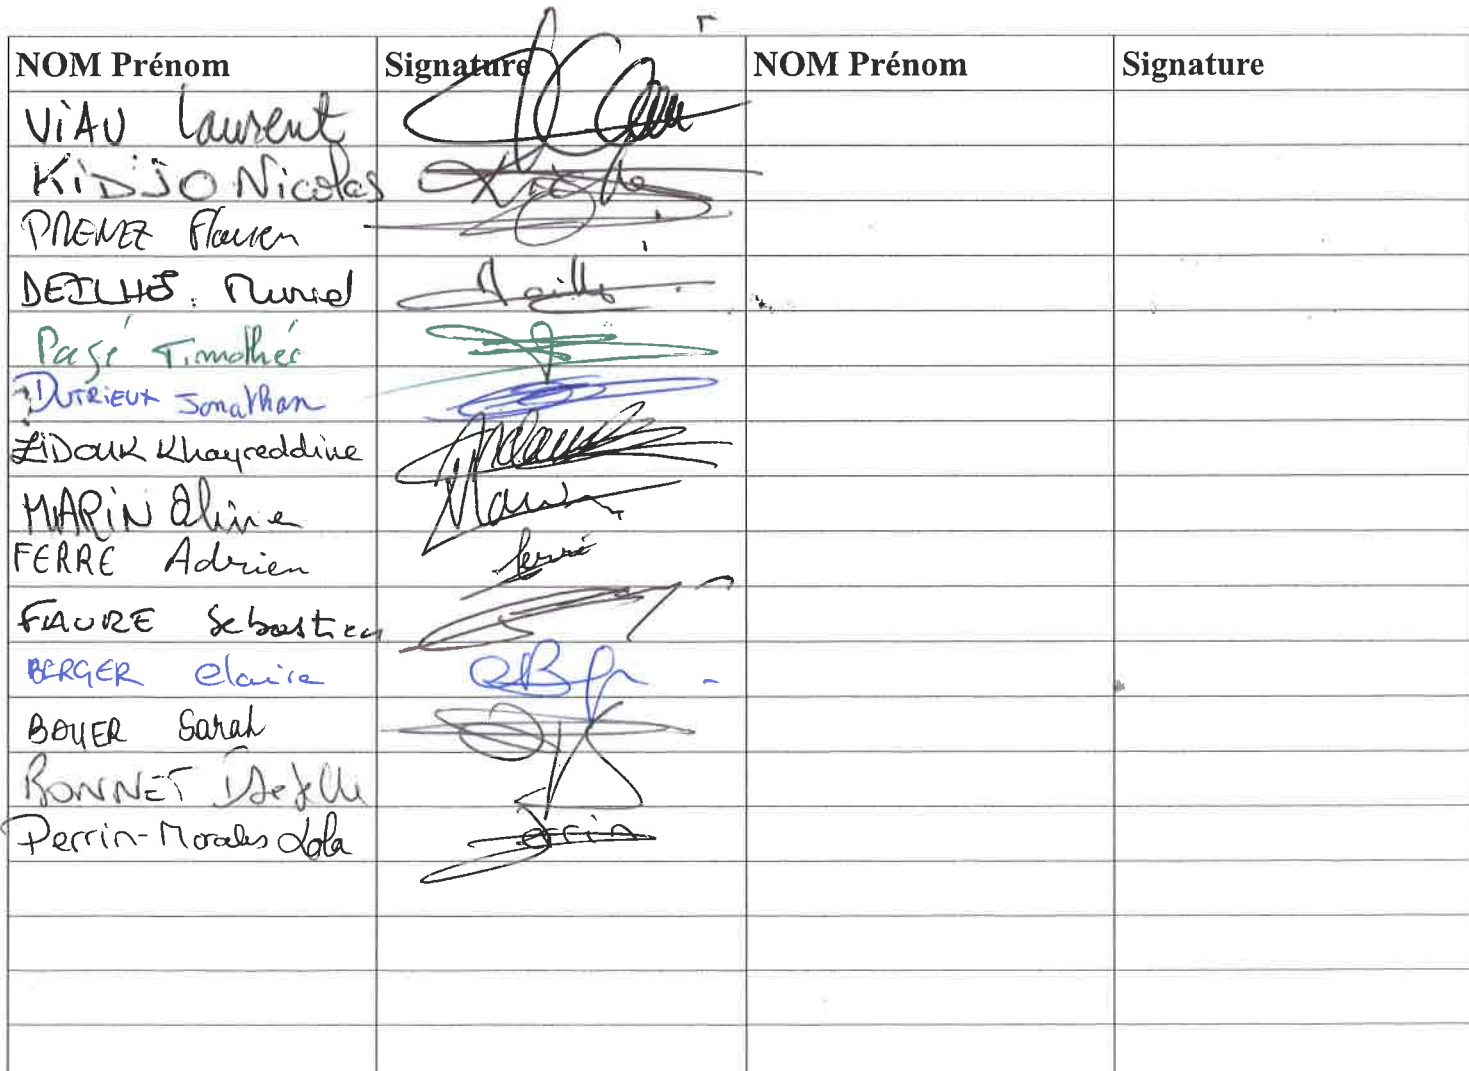 NOM Prénom Signature NOM Prénom Signature
VIAU Laurent
KIDJO Nicolas
PRENEZ Flavien
DEILHES Muriel
Pagé Timothée
DUTRIEUX Jonathan
ZIDOUK Khayreddine
MARIN Aline
FERRE Adrien ferré
FAURE Sebastien
BERGER Claire
BOYER Sarah
BONNET
Perrin-Morales Lola Perrin